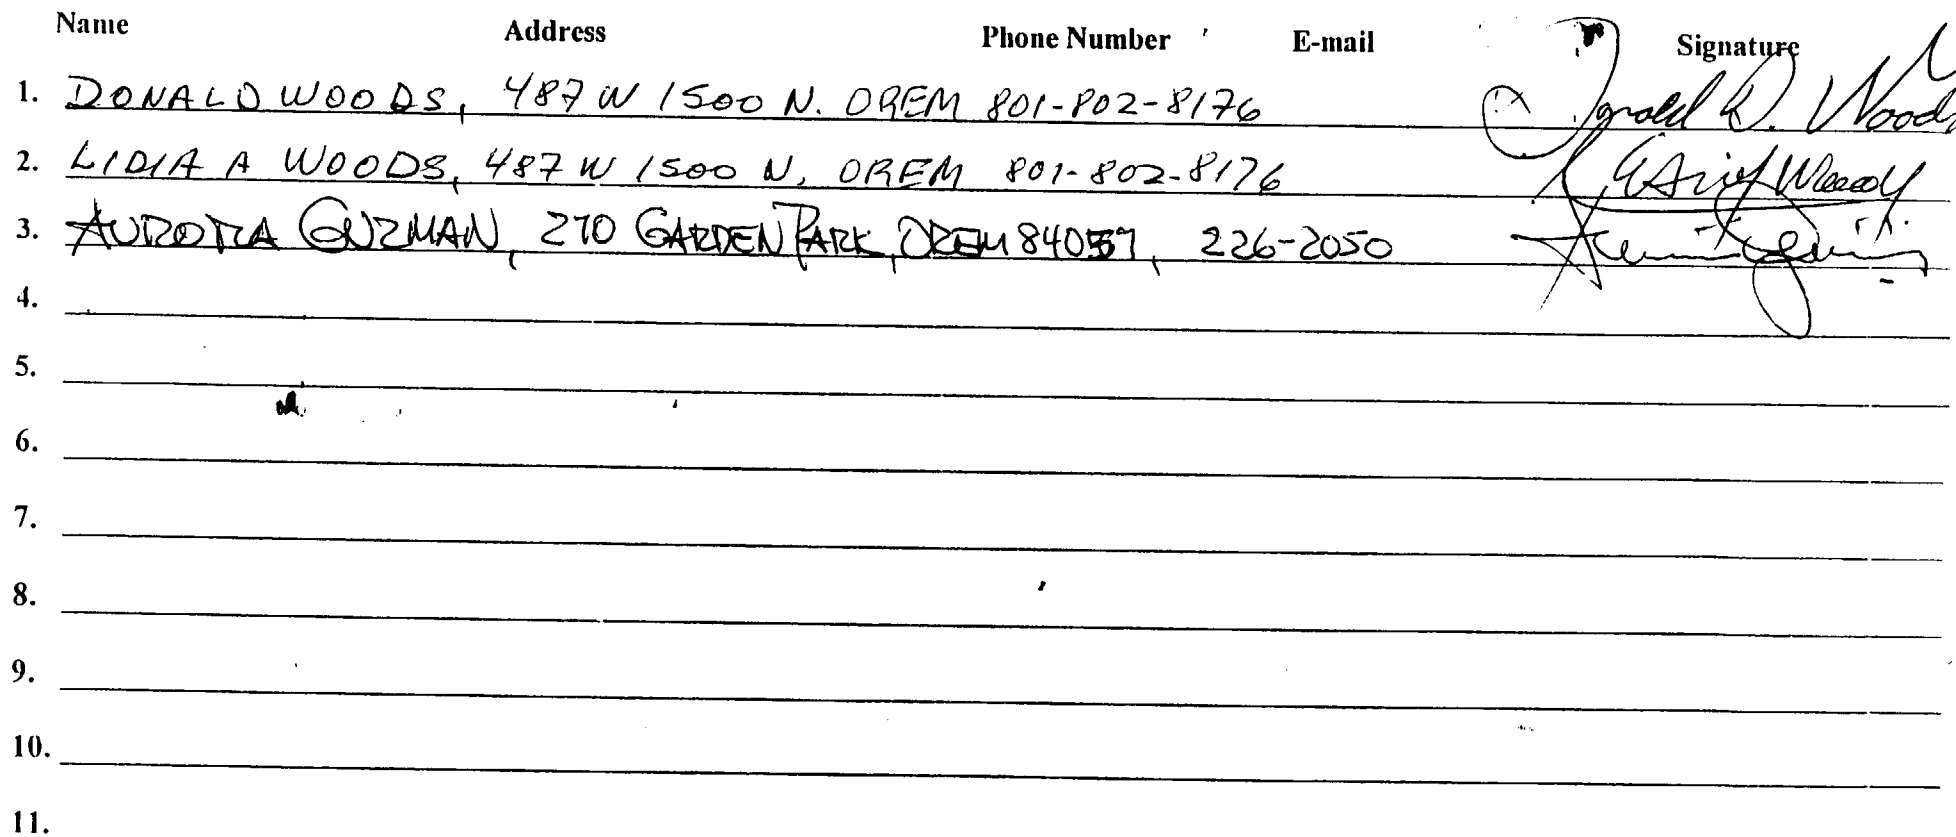 Name Address Phone Number E-mail Signature
1. DONALD WOODS, 487 W 1500 N. OREM 801-802-8176 Donald D. Woods
2. LIDIA A WOODS, 487 W 1500 N. OREM 801-802-8176 Woods
3. AURORA GUZMAN, 270 GARDEN PARK, OREM 84057, 226-2050
4.
5.
6.
7.
8.
9.
10.
11.